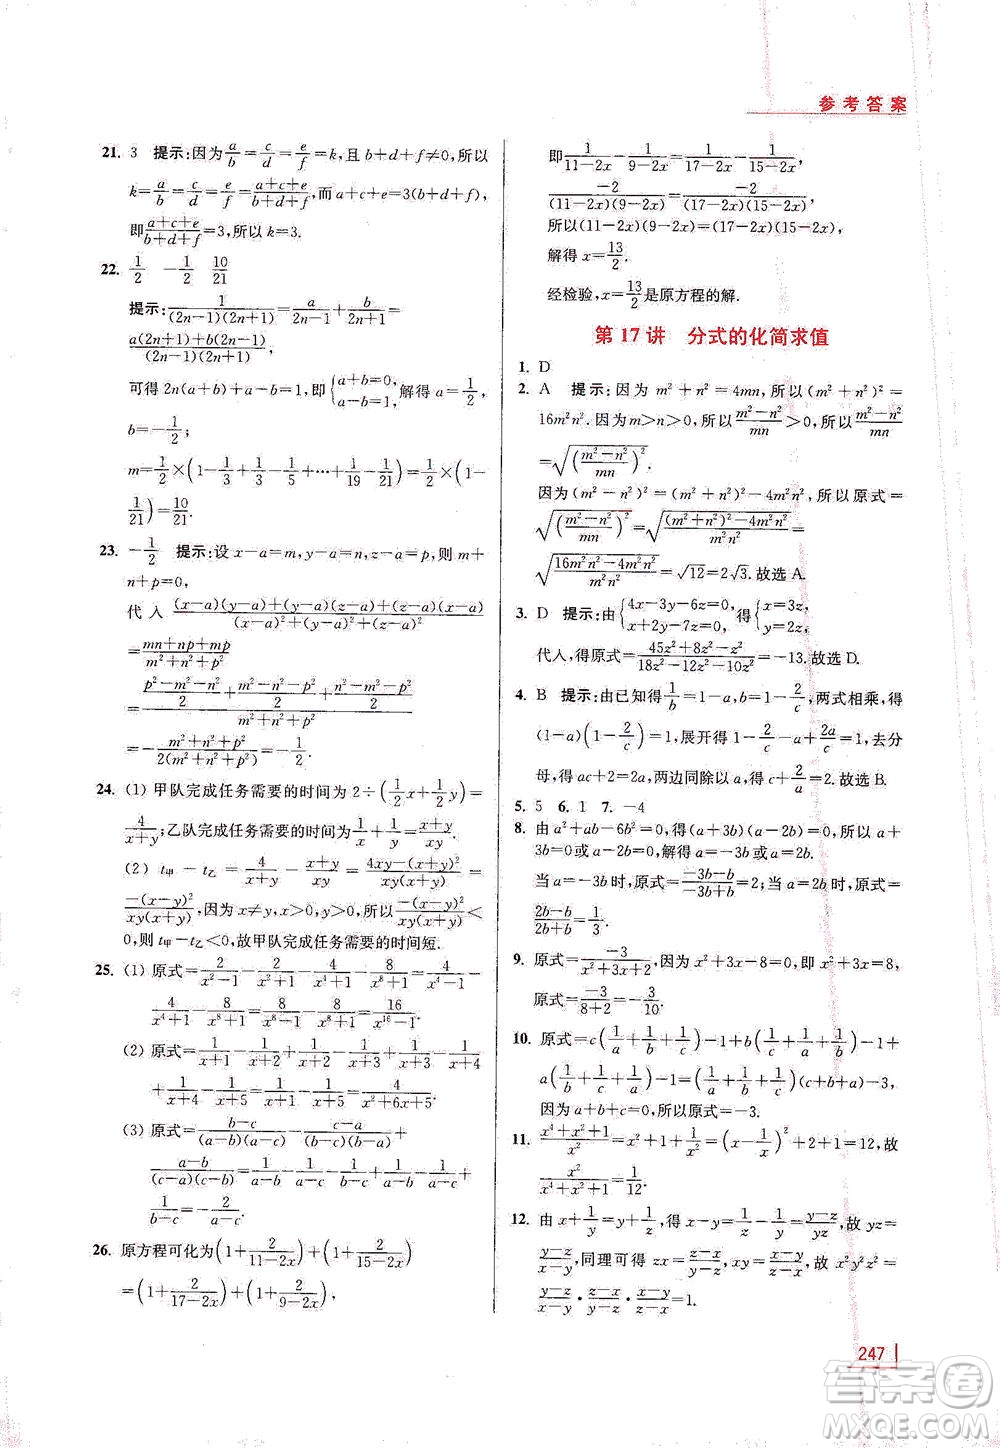 参考答案
21. 3 提示:因为a/b=c/d=e/f=k,且b+d+f≠0,所以
k=a/b=c/d=e/f=(a+c+e)/(b+d+f).而a+c+e=3(b+d+f),
即(a+c+e)/(b+d+f)=3,所以k=3.
22. 1/2 -1/2 10/21
提示:1/((2n-1)(2n+1))=a/(2n-1)+b/(2n+1)=
(a(2n+1)+b(2n-1))/((2n-1)(2n+1)).
可得2n(a+b)+a-b=1,即{a+b=0,a-b=1,解得a=1/2,
b=-1/2;
m=1/2×(1-1/3+1/3-1/5+…+1/19-1/21)=1/2×(1-
1/21)=10/21.
23. -1/2 提示:设x-a=m,y-a=n,z-a=p,则m+
n+p=0,
代入((x-a)(y-a)+(y-a)(z-a)+(z-a)(x-a))/((x-a)²+(y-a)²+(z-a)²)
=(mn+np+mp)/(m²+n²+p²)
=((p²-m²-n²)/2+(m²-n²-p²)/2+(n²-m²-p²)/2)/(m²+n²+p²)
=-(m²+n²+p²)/(2(m²+n²+p²))=-1/2.
24. (1) 甲队完成任务需要的时间为2÷(1/2x+1/2y)=
4/(x+y);乙队完成任务需要的时间为1/x+1/y=(x+y)/xy.
(2) t甲-t乙=4/(x+y)-(x+y)/xy=(4xy-(x+y)²)/(xy(x+y))=
-(x-y)²/(xy(x+y)),因为x≠y,x>0,y>0,所以-(x-y)²/(xy(x+y))<
0,则t甲-t乙<0,故甲队完成任务需要的时间短.
25. (1) 原式=2/(x²-1)-2/(x²+1)-4/(x⁴+1)-8/(x⁸+1)=4/(x⁴-1)-
4/(x⁴+1)-8/(x⁸+1)=8/(x⁸-1)-8/(x⁸+1)=16/(x¹⁶-1).
(2) 原式=1/(x+1)-1/(x+2)+1/(x+2)-1/(x+3)+1/(x+3)
-1/(x+4)+1/(x+4)-1/(x+5)=1/(x+1)-1/(x+5)=4/(x²+6x+5).
(3) 原式=(b-c)/((a-b)(a-c))+(c-a)/((b-c)(b-a))+
(a-b)/((c-a)(c-b))=1/(a-b)-1/(a-c)+1/(b-c)-1/(a-b)+1/(a-c)-
1/(b-c)=
26. 原方程可化为(1+2/(11-2x))+(1+2/(15-2x))
=(1+2/(17-2x))+(1+2/(9-2x)),
即1/(11-2x)-1/(9-2x)=1/(17-2x)-1/(15-2x),
-2/((11-2x)(9-2x))=-2/((17-2x)(15-2x)),
所以(11-2x)(9-2x)=(17-2x)(15-2x),
解得x=13/2.
经检验,x=13/2是原方程的解.
第17讲 分式的化简求值
1. D
2. A 提示:因为m²+n²=4mn,所以(m²+n²)²=
16m²n².因为m>n>0,所以(m²-n²)/mn>0,所以(m²-n²)/mn
=√((m²-n²)/mn)².
因为(m²-n²)²=(m²+n²)²-4m²n²,所以原式=
√((m²-n²)/mn)²=√(((m²+n²)²-4m²n²)/m²n²)=
√((16m²n²-4m²n²)/m²n²)=√12=2√3.故选A.
3. D 提示:由{4x-3y-6z=0,x+2y-7z=0,得{x=3z,y=2z,
代入,得原式=(45z²+8z²-z²)/(18z²-12z²-10z²)=-13.故选D.
4. B 提示:由已知得1/b=1-a,b=1-2/c,两式相乘,得
(1-a)(1-2/c)=1,展开得1-2/c-a+2a/c=1,去分
母,得ac+2=2a,两边同除以a,得c+2/a=2.故选B.
5. 5 6. 1 7. -4
8. 由a²+ab-6b²=0,得(a+3b)(a-2b)=0,所以a+
3b=0或a-2b=0,解得a=-3b或a=2b.
当a=-3b时,原式=(-3b-b)/(-3b+b)=2;当a=2b时,原式=
(2b-b)/(2b+b)=1/3.
9. 原式=-3/(x²+3x+2),因为x²+3x-8=0,即x²+3x=8,
原式=-3/(8+2)=-3/10.
10. 原式=c(1/a+1/b+1/c)-1+b(1/a+1/c+1/b)-1+
a(1/b+1/c+1/a)-1=(1/a+1/b+1/c)(a+b+c)-3.
因为a+b+c=0,所以原式=-3.
11. (x⁴+x²+1)/x²=x²+1+1/x²=(x-1/x)²+2+1=12,故
x²/(x⁴+x²+1)=1/12.
12. 由x+1/y=y+1/z,得x-y=1/z-1/y=(y-z)/yz,故yz=
(y-z)/(x-y),同理可得zx=(z-x)/(y-z),xy=(x-y)/(z-x),故x²y²z²=
(y-z)/(x-y)·(z-x)/(y-z)·(x-y)/(z-x)=1.
247
答案圈
MXQE.COM